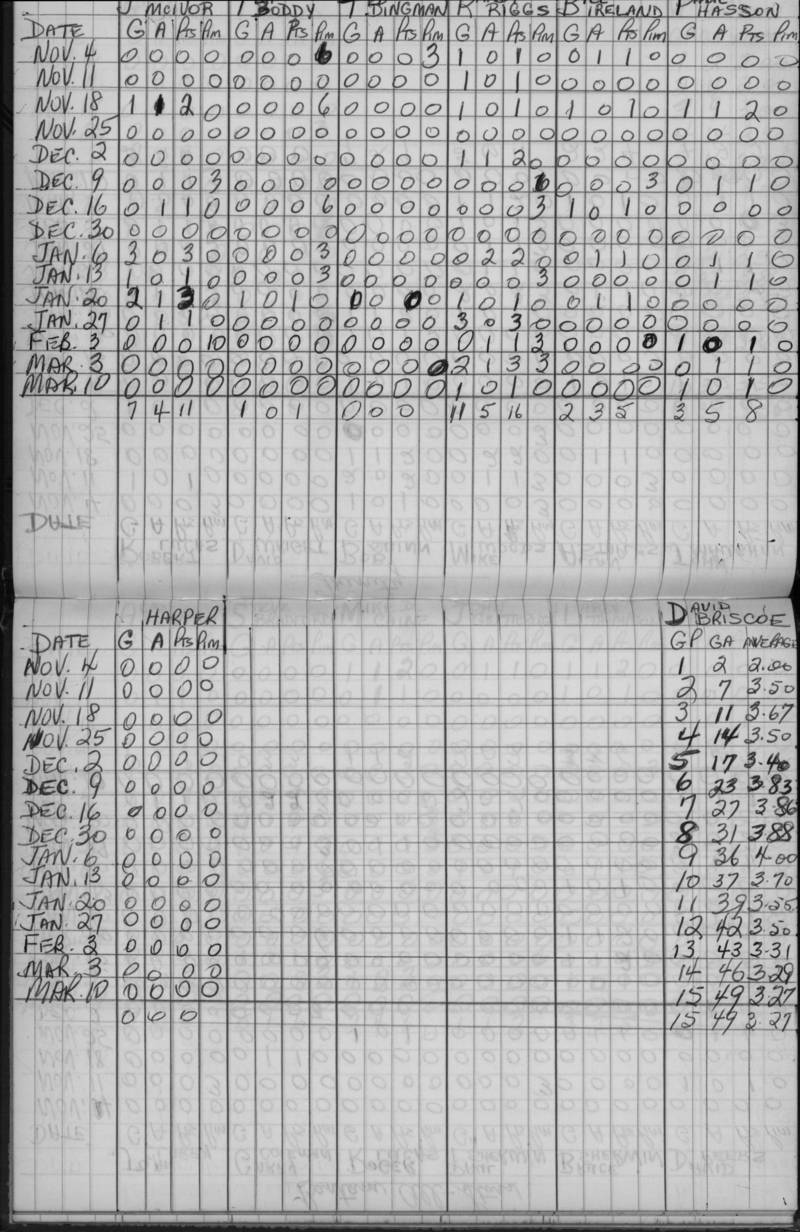 J MCIVOR T BODDY T BINGMAN R RIGGS B IRELAND P HASSON
DATE G A Pts Pim G A Pts Pim G A Pts Pim G A Pts Pim G A Pts Pim G A Pts Pim
NOV. 4 0 0 0 0 0 0 0 6 0 0 0 3 1 0 1 0 0 1 1 0 0 0 0 0
NOV. 11 0 0 0 0 0 0 0 0 0 0 0 0 1 0 1 0 0 0 0 0 0 0 0 0
NOV. 18 1 1 2 0 0 0 0 6 0 0 0 0 1 0 1 0 1 0 1 0 1 1 2 0
NOV. 25 0 0 0 0 0 0 0 0 0 0 0 0 0 0 0 0 0 0 0 0 0 0 0 0
DEC. 2 0 0 0 0 0 0 0 0 0 0 0 0 1 1 2 0 0 0 0 0 0 0 0 0
DEC. 9 0 0 0 3 0 0 0 0 0 0 0 0 0 0 0 6 0 0 0 3 0 1 1 0
DEC. 16 0 1 1 0 0 0 0 6 0 0 0 0 0 0 0 3 1 0 1 0 0 0 0 0
DEC. 30 0 0 0 0 0 0 0 0 0 0 0 0 0 0 0 0 0 0 0 0 0 0 0 0
JAN. 6 3 0 3 0 0 0 0 3 0 0 0 0 0 2 2 0 0 1 1 0 0 1 1 0
JAN. 13 1 0 1 0 0 0 0 3 0 0 0 0 0 0 0 3 0 0 0 0 0 1 1 0
JAN. 20 2 1 3 0 1 0 1 0 0 0 0 0 1 0 1 0 0 1 1 0 0 0 0 0
JAN. 27 0 1 1 0 0 0 0 0 0 0 0 0 3 0 3 0 0 0 0 0 0 0 0 0
FEB. 3 0 0 0 10 0 0 0 0 0 0 0 0 0 1 1 3 0 0 0 0 1 0 1 0
MAR. 3 0 0 0 0 0 0 0 0 0 0 0 0 2 1 3 3 0 0 0 0 0 1 1 0
MAR. 10 0 0 0 0 0 0 0 0 0 0 0 0 1 0 1 0 0 0 0 0 1 0 1 0
7 4 11 1 0 1 0 0 0 11 5 16 2 3 5 3 5 8
HARPER DAVID BRISCOE
DATE G A Pts Pim GP GA AVERAGE
NOV. 4 0 0 0 0 1 2 2.00
NOV. 11 0 0 0 0 2 7 3.50
NOV. 18 0 0 0 0 3 11 3.67
NOV. 25 0 0 0 0 4 14 3.50
DEC. 2 0 0 0 0 5 17 3.40
DEC. 9 0 0 0 0 6 23 3.83
DEC. 16 0 0 0 0 7 27 3.86
DEC. 30 0 0 0 0 8 31 3.88
JAN. 6 0 0 0 0 9 36 4.00
JAN. 13 0 0 0 0 10 37 3.70
JAN. 20 0 0 0 0 11 39 3.55
JAN. 27 0 0 0 0 12 42 3.50
FEB. 3 0 0 0 0 13 43 3.31
MAR. 3 0 0 0 0 14 46 3.29
MAR. 10 0 0 0 0 15 49 3.27
0 0 0 15 49 3.27